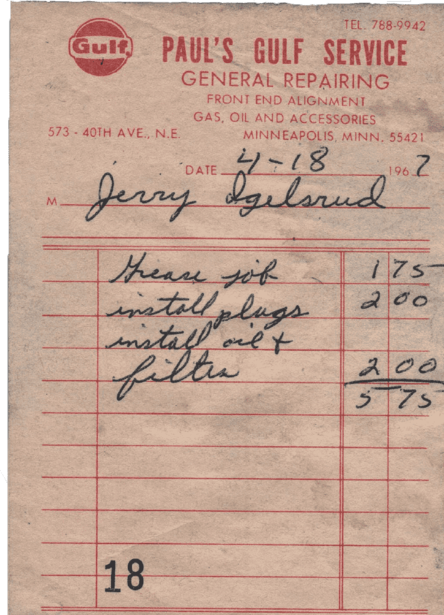 TEL. 788-9942
Gulf
PAUL'S GULF SERVICE
GENERAL REPAIRING
FRONT END ALIGNMENT
GAS, OIL AND ACCESSORIES
573 - 40TH AVE., N.E. MINNEAPOLIS, MINN. 55421
DATE 4-18 1967
M Jerry Igelsrud
Grease job 1 75
install plugs 2 00
install oil +
filter 2 00
5 75
18